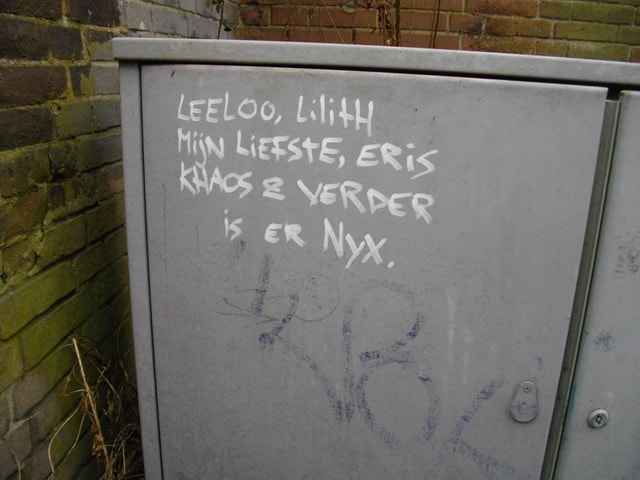 LEELOO, LiliTH
MijN LiEFSTE, ERiS
KHAOS & VERDER
iS ER NYX.